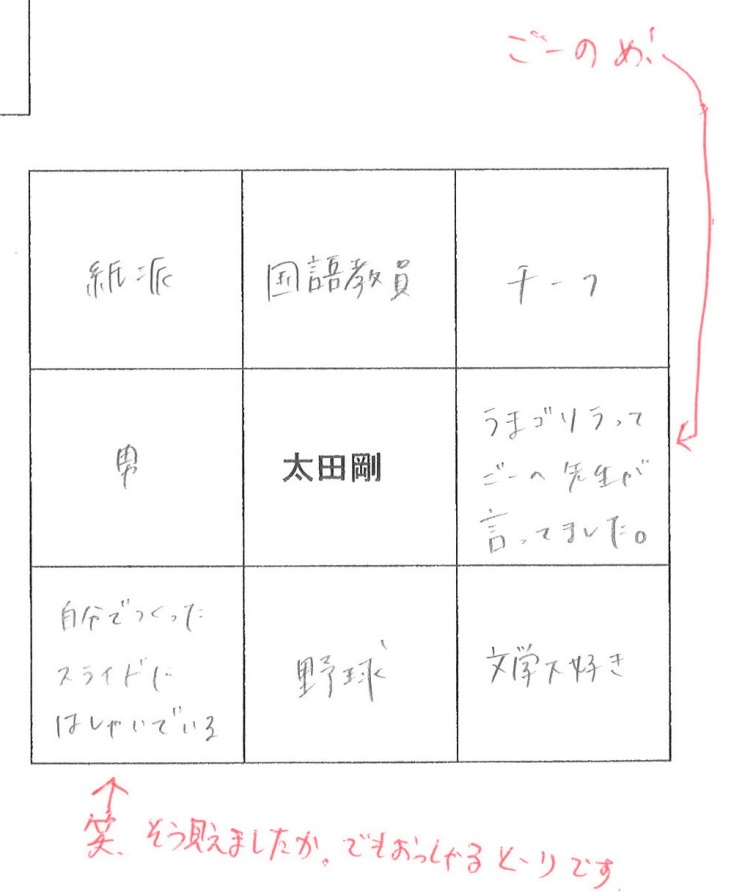 ごーのめ!
紙派
国語教員
チーフ
男
太田剛
うまゴリラって
ごーへ先生が
言ってました。
自分でつくった
スライドに
はしゃいでいる
野球
文学大好き
笑、そう見えましたか。でもおっしゃるとーりです